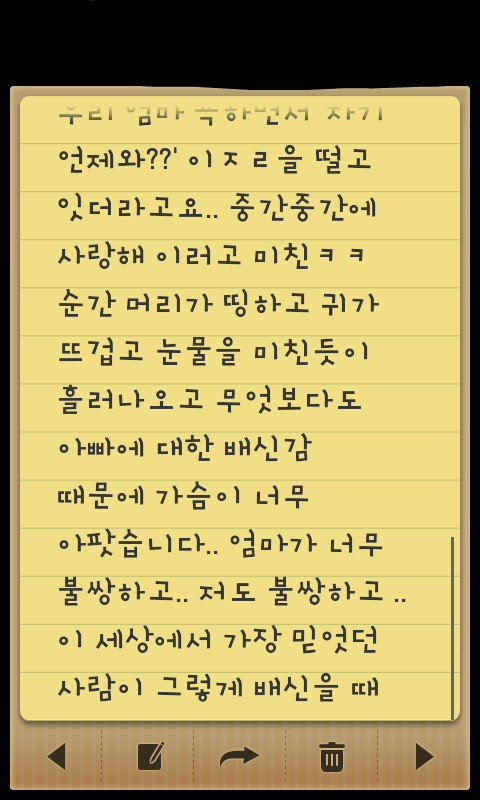 우리 엄마 욕하면서 자기
언제와??' 이ㅈㄹ을 떨고
잇더라고요.. 중간중간에
사랑해 이러고 미친ㅋㅋ
순간 머리가 띵하고 귀가
뜨겁고 눈물을 미친듯이
흘러나오고 무엇보다도
아빠에 대한 배신감
때문에 가슴이 너무
아팟습니다.. 엄마가 너무
불쌍하고.. 저도 불쌍하고 ..
이 세상에서 가장 믿엇던
사람이 그렇게 배신을 때